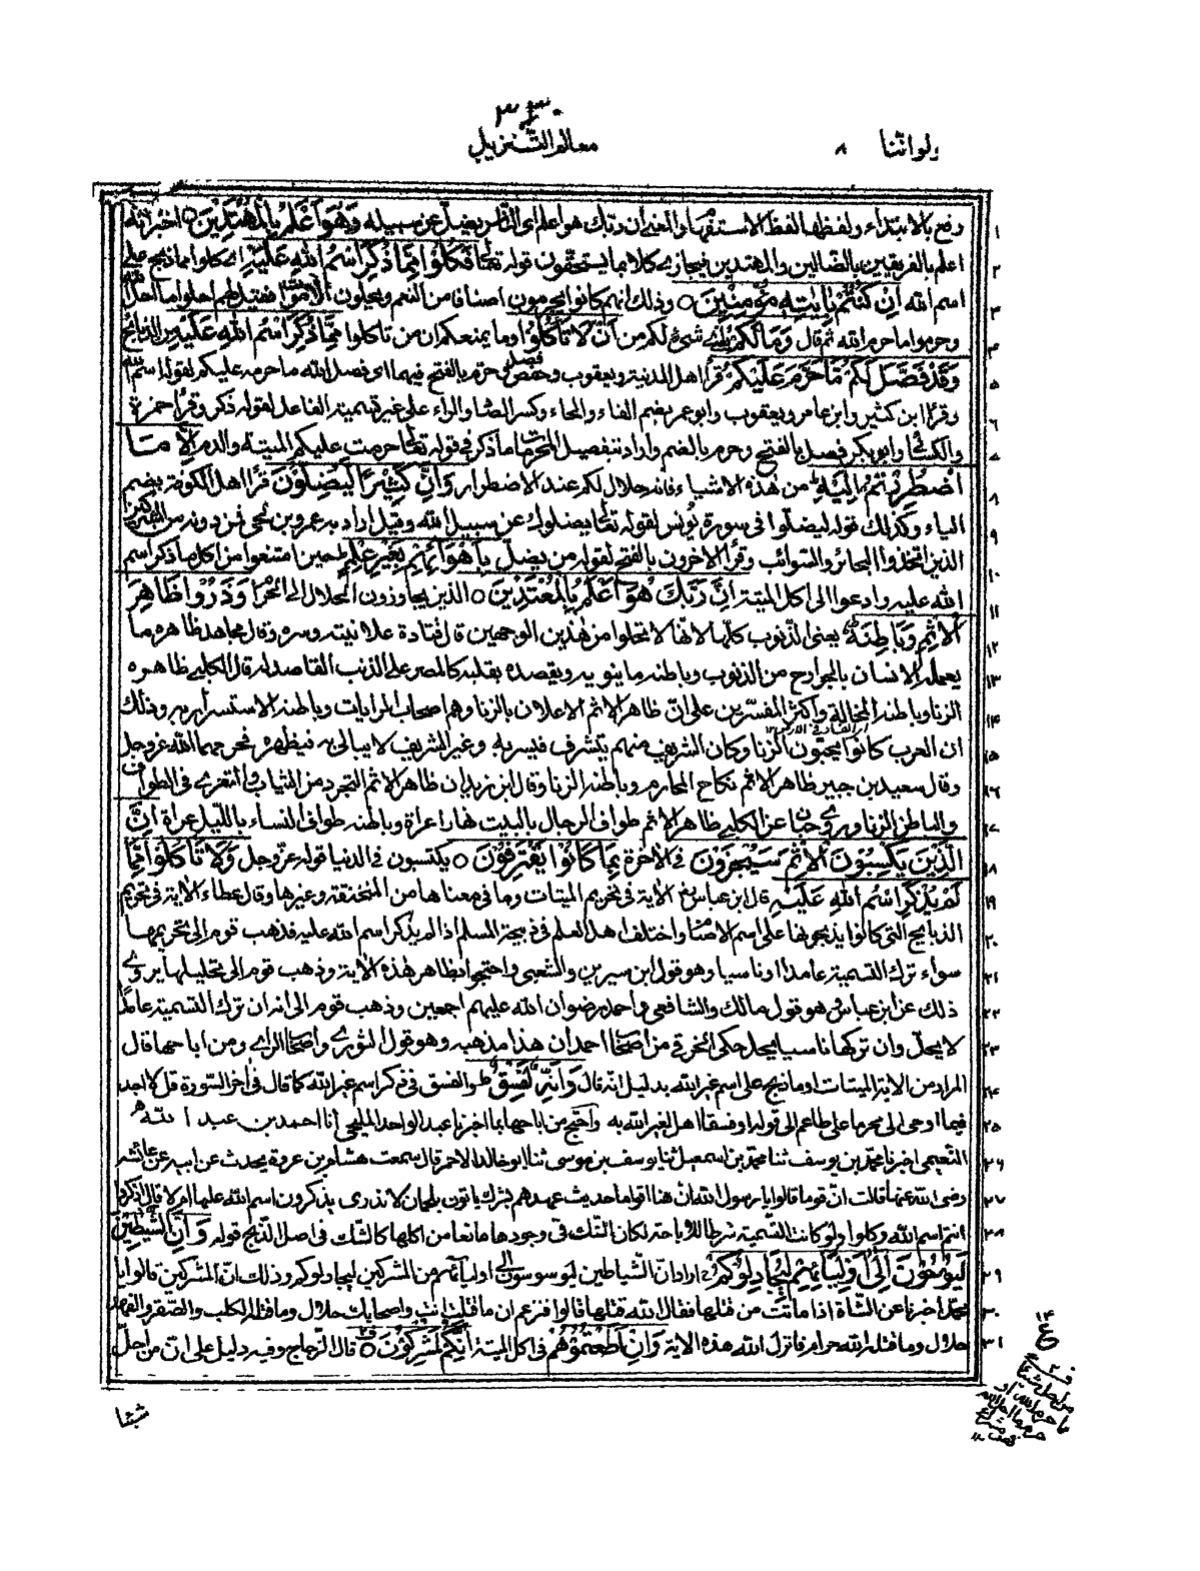 ٣٣٠
ولو اننا ٨ معالم التنزيل
١ رفع بالابتداء ولفظها لفظ الاستفهام والمعنى ان ربك هو اعلم اى الناس يضل عن سبيله وَهُوَ اَعْلَمُ بِالْمُهْتَدِيْنَ ○ اخبر انه
٢ اعلم بالفريقين بالضالين والمهتدين فيجازى كلا بما يستحقون قوله تعالى فَكُلُوْا مِمَّا ذُكِرَ اسْمُ اللهِ عَلَيْهِ اى كلوا مما ذبح على
٣ اسم الله اِنْ كُنْتُمْ بِاٰيٰتِهٖ مُؤْمِنِيْنَ ○ وذلك انهم كانوا يحرمون اصنافا من النعم ويحلون الاموات فقيل لهم احلوا ما احل الله
٤ وحرموا ما حرم الله ثم قال وَمَا لَكُمْ اى شىء لكم من اَنْ لَا تَاْكُلُوْا وما يمنعكم ان من تاكلوا مِمَّا ذُكِرَ اسْمُ اللهِ عَلَيْهِ من الذبائح
٥ وَقَدْ فَصَّلَ لَكُمْ مَّا حَرَّمَ عَلَيْكُمْ قرأ اهل المدينة ويعقوب وحفص فصل وحرم بالفتح فيهما اى فصل الله ما حرمه عليكم لقوله اسم الله
٦ وقرأ ابن كثير وابن عامر ويعقوب وابو عمر بضم الفاء والحاء وكسر الصاد والراء على غير تسمية الفاعل لقوله ذكر وقرأ حمزة
٧ والكسائى وابو بكر فصل بالفتح وحرم بالضم واراد بتفصيل المحرمات ما ذكر فى قوله تعالى حرمت عليكم الميتة والدم اِلَّا مَا
٨ اضْطُرِرْتُمْ اِلَيْهِ من هذه الاشياء فانه حلال لكم عند الاضطرار وَاِنَّ كَثِيْرًا لَّيُضِلُّوْنَ قرأ اهل الكوفة بضم
٩ الياء وكذلك قوله ليضلوا فى سورة يونس لقوله تعالى يضلوك عن سبيل الله وقيل اراد به عمرو بن لحى فمن دونه من المشركين
١٠ الذين اتخذوا البحائر والسوائب وقرأ الاخرون بالفتح لقوله من يضل بِاَهْوَآئِهِمْ بِغَيْرِ عِلْمٍ حين امتنعوا من اكل ما ذكر اسم
١١ الله عليه ودعوا الى اكل الميتة اِنَّ رَبَّكَ هُوَ اَعْلَمُ بِالْمُعْتَدِيْنَ ○ الذين يجاوزون الحلال الى الحرام وَذَرُوْا ظَاهِرَ
١٢ الْاِثْمِ وَبَاطِنَهٗ يعنى الذنوب كلها لانها لا تخلوا من هذين الوجهين قال قتادة علانيته وسره وقال مجاهد ظاهره ما
١٣ يعمله الانسان بالجوارح من الذنوب وباطنه ما ينويه ويقصده بقلبه كالمصر على الذنب القاصد له قال الكلبى ظاهره
١٤ الزنا وباطنه المخالة واكثر المفسرين على ان ظاهر الاثم الاعلان بالزنا وهم اصحاب الرايات وباطنه الاستسرار به وذلك
١٥ ان العرب كانوا يحبون الزنا وكان الشريف منهم يتشرف فيسر به وغير الشريف لا يبالى به فيظهره فحرمهما الله عز وجل
١٦ وقال سعيد بن جبير ظاهر الاثم نكاح المحارم وباطنه الزنا وقال ابن زيد ان ظاهر الاثم التجرد من الثياب والتعرى فى الطواف
١٧ والباطن الزنا وروى حبان عن الكلبى ظاهر الاثم طواف الرجال بالبيت نهارا عراة وباطنه طواف النساء بالليل عراة اِنَّ
١٨ الَّذِيْنَ يَكْسِبُوْنَ الْاِثْمَ سَيُجْزَوْنَ فى الاخرة بِمَا كَانُوْا يَقْتَرِفُوْنَ ○ يكتسبون فى الدنيا قوله عز وجل وَلَا تَاْكُلُوْا مِمَّا
١٩ لَمْ يُذْكَرِ اسْمُ اللهِ عَلَيْهِ قال ابن عباس رض الاية فى تحريم الميتات وما فى معناها من المنخنقة وغيرها وقال عطاء الاية فى تحريم
٢٠ الذبايح التى كانوا يذبحونها على اسم الاصنام واختلف اهل العلم فى ذبيحة المسلم اذا لم يذكر اسم الله عليه فذهب قوم الى تحريمها
٢١ سواء ترك التسمية عامدا او ناسيا وهو قول ابن سيرين والشعبى واحتجوا بظاهر هذه الاية وذهب قوم الى تحليلها يروى
٢٢ ذلك عن ابن عباس وهو قول مالك والشافعى واحمد رضوان الله عليهم اجمعين وذهب قوم الى انه ان ترك التسمية عامدا
٢٣ لا يحل وان تركها ناسيا يحل حكى الخرقى من اصحاب احمد ان هذا مذهبه وهو قول الثورى واصحاب الراى ومن اباحها قال
٢٤ المراد من الاية الميتات او ما ذبح على اسم غير الله بدليل انه قال وَاِنَّهٗ لَفِسْقٌ والفسق فى ذكر اسم غير الله كما قال فى اخر السورة قل لا اجد
٢٥ فيما اوحى الى محرما على طاعم الى قوله او فسقا اهل لغير الله به واحتج من اباحها بما اخبرنا عبد الواحد المليحى انا احمد بن عبد الله
٢٦ النعيمى اخبرنا محمد بن يوسف ثنا محمد بن اسمعيل ثنا يوسف بن موسى ثنا ابو خالد الاحمر قال سمعت هشام بن عروة يحدث عن ابيه عن عائشة
٢٧ رضى الله عنها قالت ان قوما قالوا يا رسول الله ان هنا اقواما حديث عهدهم بشرك ياتون بلحمان لا ندرى يذكرون اسم الله عليها ام لا قال اذكروا
٢٨ انتم اسم الله وكلوا ولو كانت التسمية شرطا للاباحة لكان الشك فى وجودها مانعا من اكلها كالشك فى اصل الذبح قوله وَاِنَّ الشَّيٰطِيْنَ
٢٩ لَيُوْحُوْنَ اِلٰٓى اَوْلِيَآئِهِمْ لِيُجَادِلُوْكُمْ اراد ان الشياطين ليوسوسون الى اوليائهم من المشركين ليجادلوكم وذلك ان المشركين قالوا يا
٣٠ محمد اخبرنا عن الشاة اذا ماتت من قتلها فقال الله قتلها قالوا فتزعم ان ما قتلت انت واصحابك حلال وما قتله الكلب والصقر والفهد
٣١ حلال وما قتله الله حرام فانزل الله هذه الاية وَاِنْ اَطَعْتُمُوْهُمْ فى اكل الميتة اِنَّكُمْ لَمُشْرِكُوْنَ ○ قال الزجاج وفيه دليل على ان من احل
شيئا